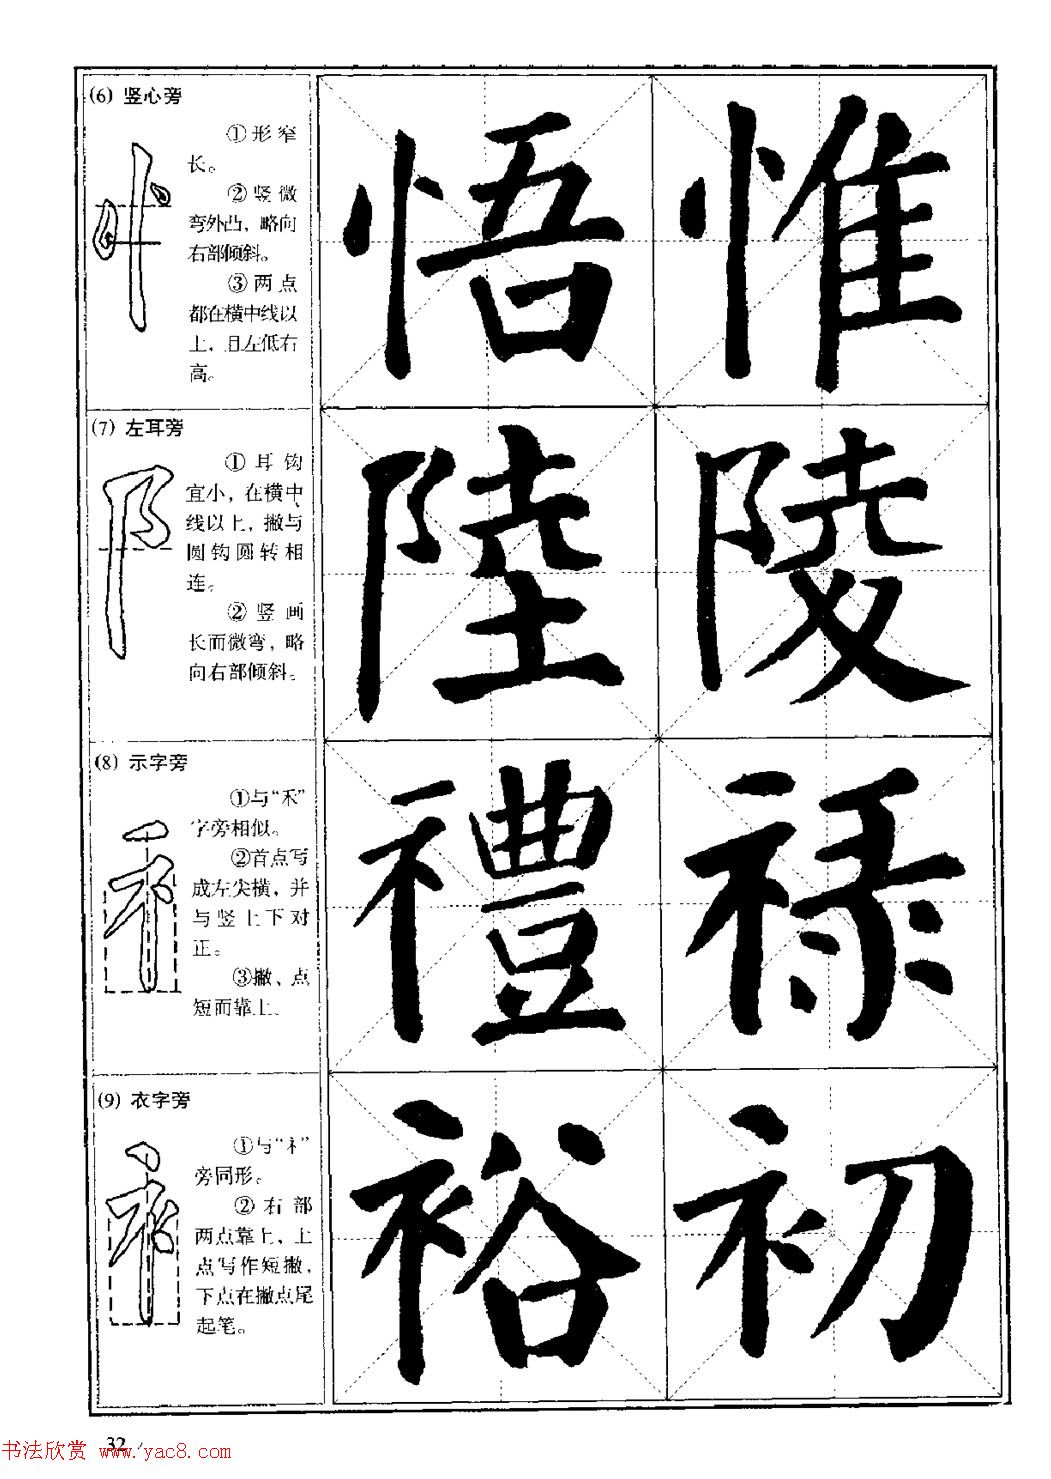 (6) 竖心旁
①形窄
长。
②竖微
弯外凸，略向
右部倾斜。
③两点
都在横中线以
上，且左低右
高。
悟 惟
(7) 左耳旁
①耳钩
宜小，在横中
线以上，撇与
圆钩圆转相
连。
②竖画
长而微弯，略
向右部倾斜。
陸 陵
(8) 示字旁
①与“禾”
字旁相似。
②首点写
成左尖横，并
与竖上下对
正。
③撇、点
短而靠上。
禮 禄
(9) 衣字旁
①与“礻”
旁同形。
②右部
两点靠上，上
点写作短撇，
下点在撇点尾
起笔。
裕 初
32
书法欣赏 www.yac8.com